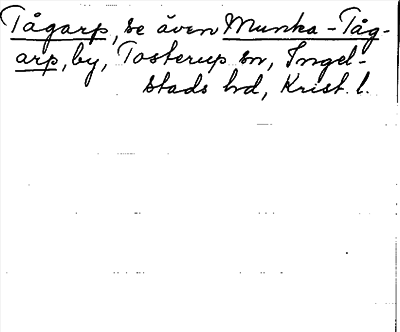 Tågarp, se även Munka-Tåg-
arp, by, Tosterup sn, Ingel-
stads hd, Krist. l.